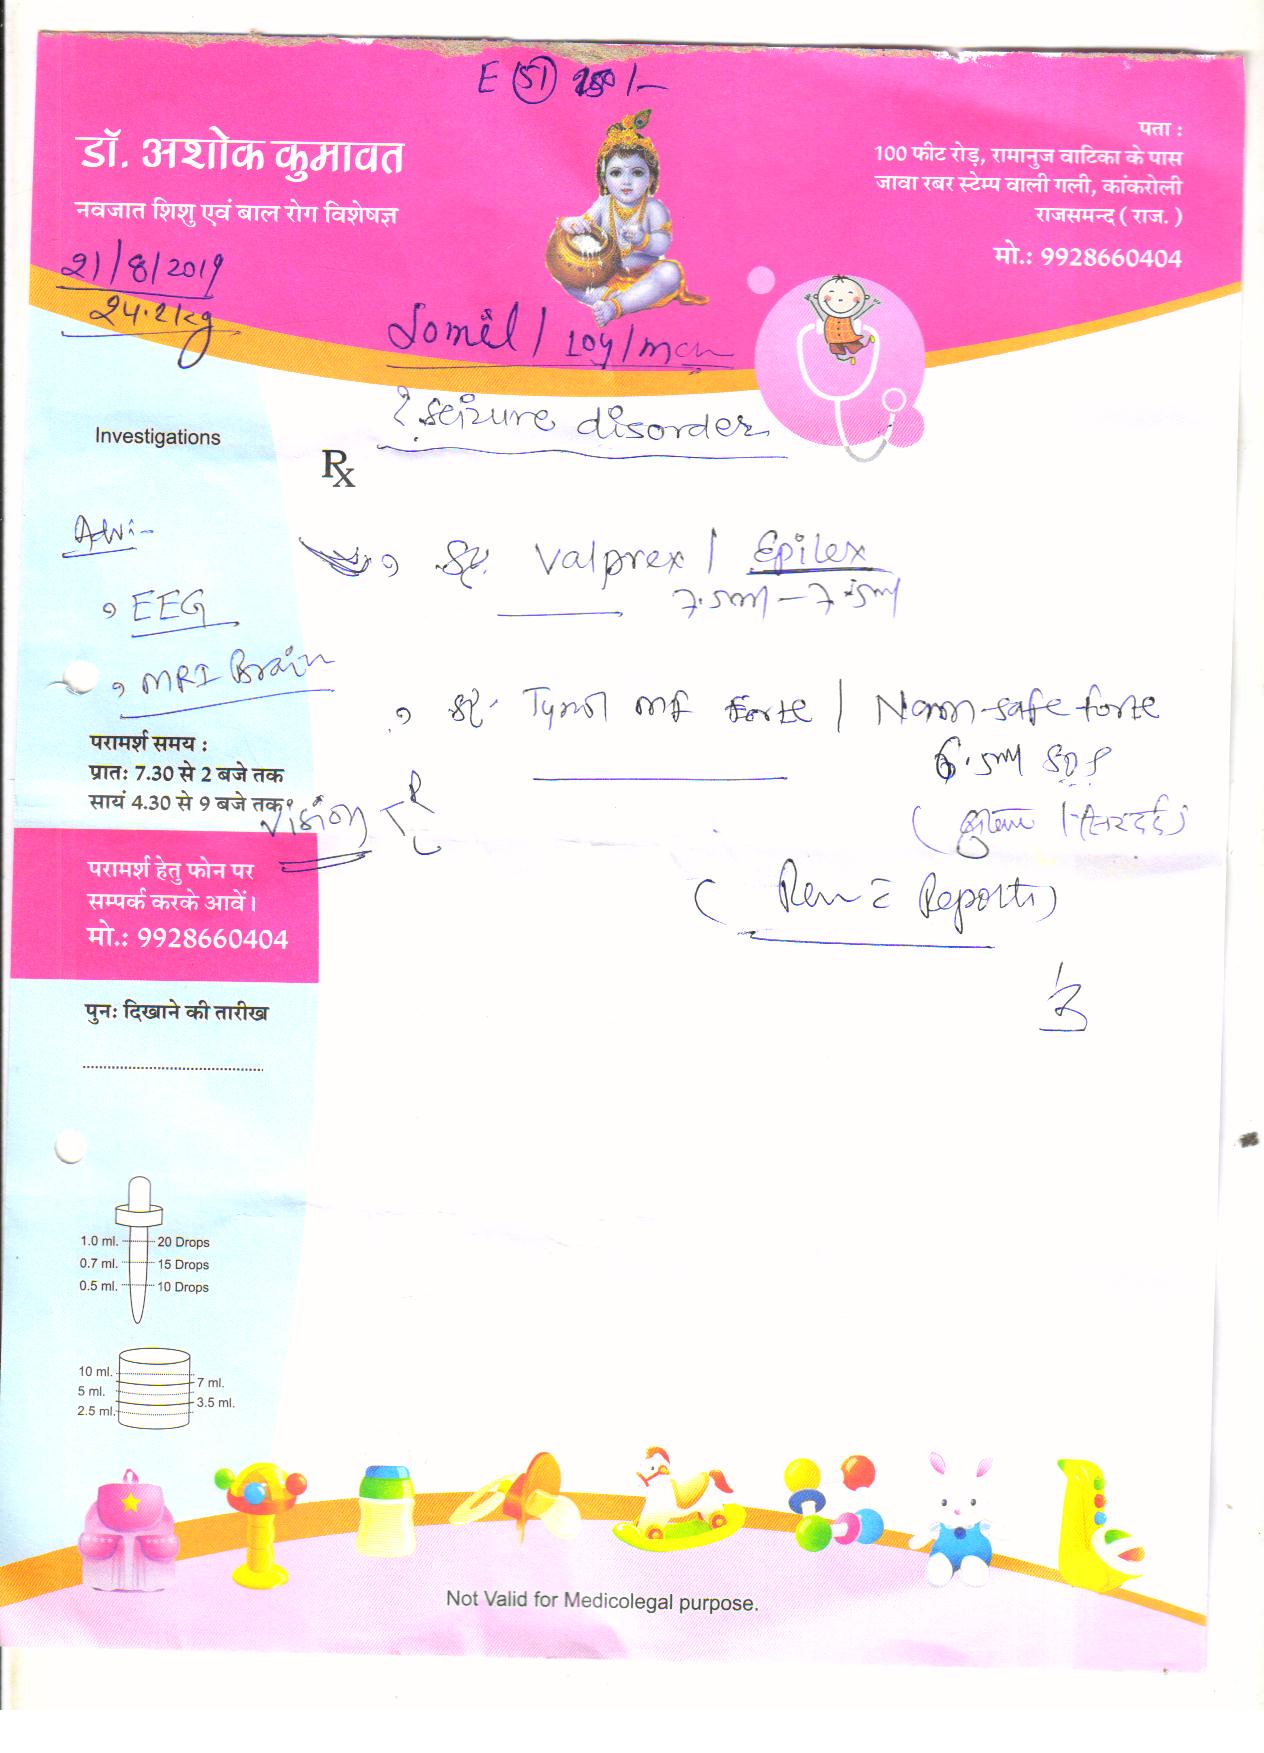 E 51 250/-
डॉ. अशोक कुमावत
नवजात शिशु एवं बाल रोग विशेषज्ञ
पता :
100 फीट रोड़, रामानुज वाटिका के पास
जावा रबर स्टेम्प वाली गली, कांकरोली
राजसमन्द ( राज. )
मो.: 9928660404
21/8/2019
24.2 kg
Somil / 10y / mch
? Seizure disorder
Investigations
Rx
Adv:-
EEG
MRI Brain
Sy. Valprex / Epilex
7.5ml - 7.5ml
Sy. Tynol mf forte / Nom-safe forte
6.5ml SOS
( बुखार / सिरदर्द )
परामर्श समय :
प्रातः 7.30 से 2 बजे तक
सायं 4.30 से 9 बजे तक
Vision R L
( Rev c̄ Reports )
परामर्श हेतु फोन पर
सम्पर्क करके आवें।
मो.: 9928660404
पुनः दिखाने की तारीख
1.0 ml. 20 Drops
0.7 ml. 15 Drops
0.5 ml. 10 Drops
10 ml.
7 ml.
5 ml.
3.5 ml.
2.5 ml.
Not Valid for Medicolegal purpose.